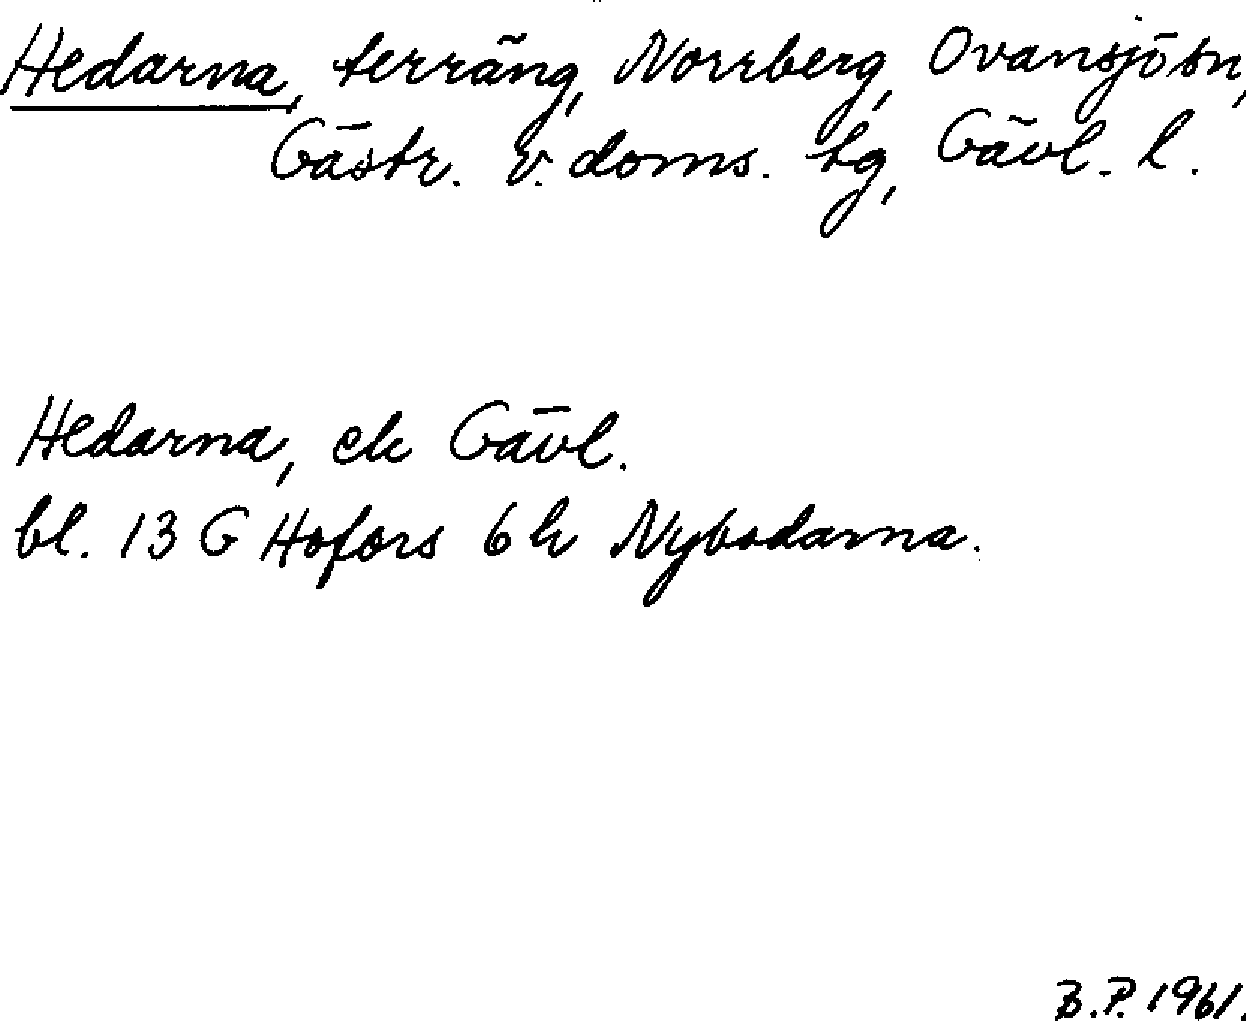 Hedarna, terräng, Norrberg, Ovansjö sn,
Gästr. v. doms. tg, Gävl. l.
Hedarna, ek Gävl.
bl. 13 G Hofors 6 h Nybodarna.
B.P. 1961.